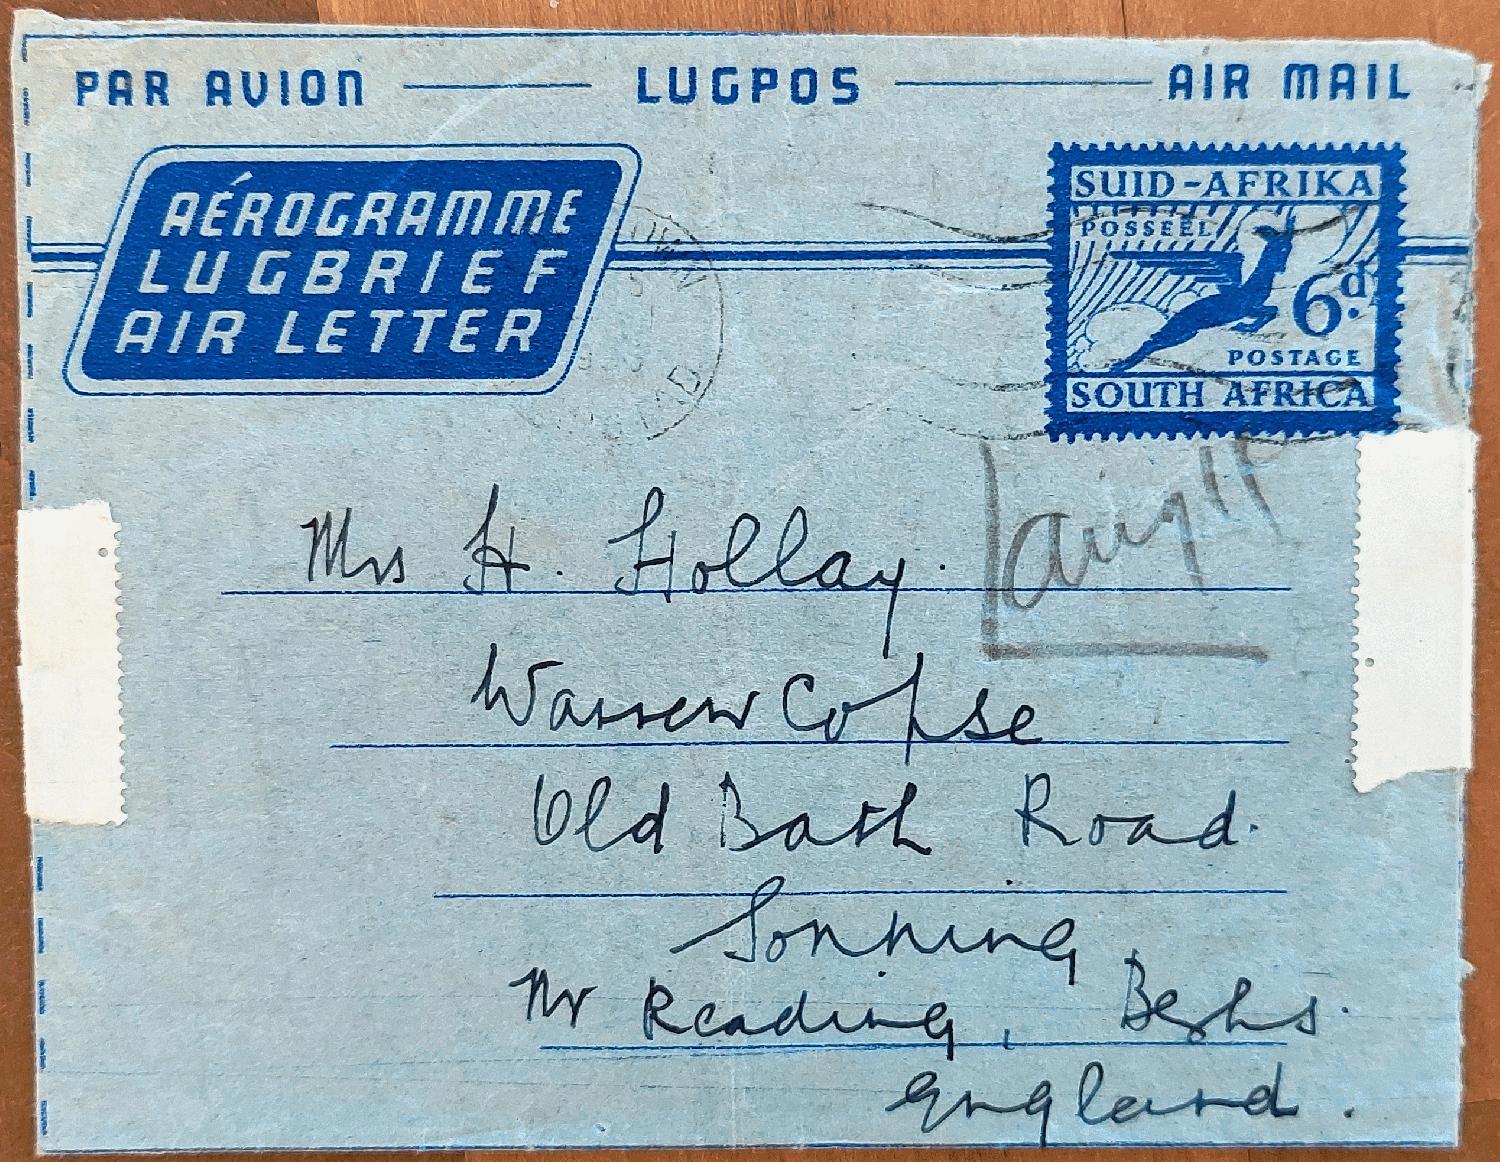 PAR AVION LUGPOS AIR MAIL
AÉROGRAMME
LUGBRIEF
AIR LETTER
SUID-AFRIKA
POSSEËL
6d.
POSTAGE
SOUTH AFRICA
Mrs H. Hollay.
Warren Copse
Old Bath Road.
Sonning
Nr Reading, Berks.
England.